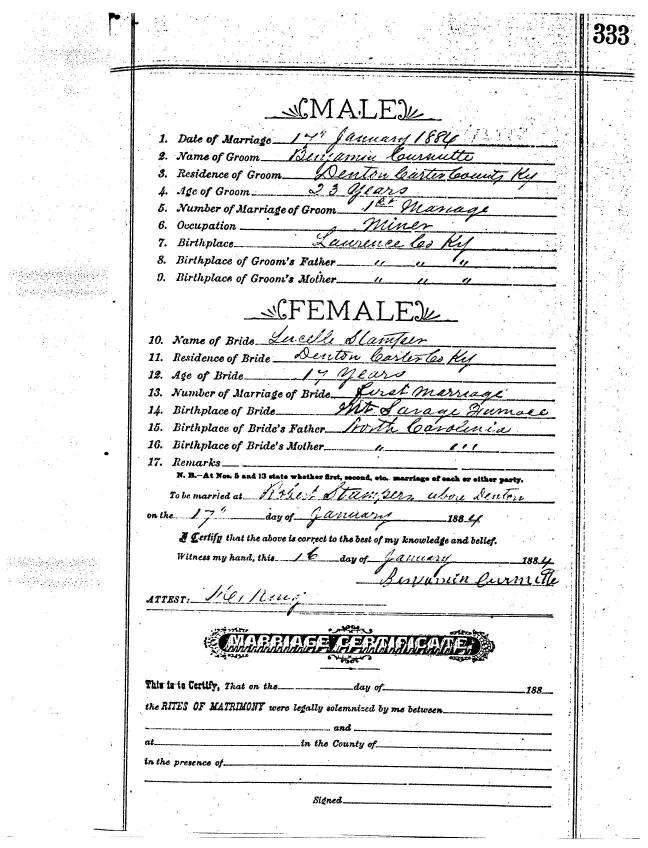 333
MALE
1. Date of Marriage 17" January 1884
2. Name of Groom Benjamin Curnutte
3. Residence of Groom Denton Carter County Ky
4. Age of Groom 23 Years
5. Number of Marriage of Groom 1st Marriage
6. Occupation Miner
7. Birthplace Lawrence Co Ky
8. Birthplace of Groom's Father " " "
9. Birthplace of Groom's Mother " " "
FEMALE
10. Name of Bride Lucelle Stamper
11. Residence of Bride Denton Carter Co Ky
12. Age of Bride 17 Years
13. Number of Marriage of Bride first marriage
14. Birthplace of Bride Mt Savage Furnace
15. Birthplace of Bride's Father North Carolinia
16. Birthplace of Bride's Mother " " "
17. Remarks
N. B.—At Nos. 5 and 13 state whether first, second, etc. marriage of each or either party.
To be married at Robert Stampers above Denton
on the 17" day of January 1884
I Certify that the above is correct to the best of my knowledge and belief.
Witness my hand, this 16 day of January 1884
Benjamin Curnutte
ATTEST:
MARRIAGE CERTIFICATE.
This is to Certify, That on the day of 188
the RITES OF MATRIMONY were legally solemnized by me between
and
at in the County of
in the presence of
Signed